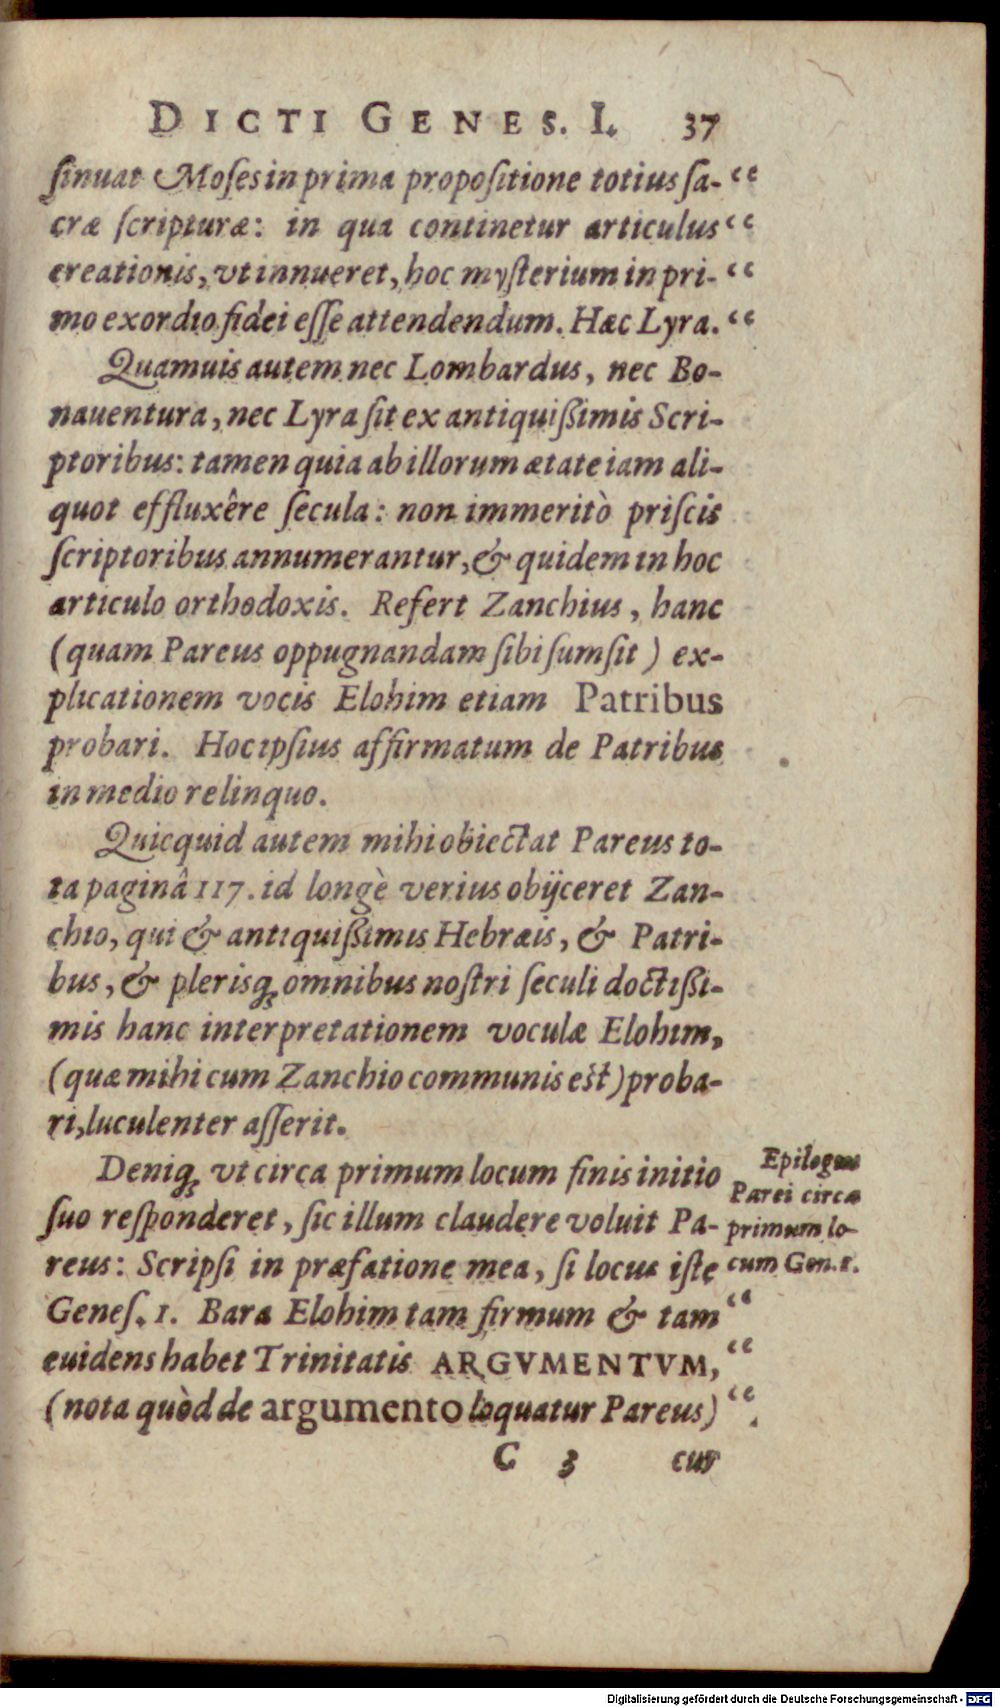 DICTI GENES. I. 37
ſinuat Moſes in prima propoſitione totius ſa- “
cræ ſcripturæ: in qua continetur articulus “
creationis, vt innueret, hoc myſterium in pri- “
mo exordio fidei eſſe attendendum. Hæc Lyra. “
Quamuis autem nec Lombardus, nec Bo-
nauentura, nec Lyra ſit ex antiquißimis Scri-
ptoribus: tamen quia ab illorum ætate iam ali-
quot effluxêre ſecula: non immeritò priſcis
ſcriptoribus annumerantur, & quidem in hoc
articulo orthodoxis. Refert Zanchius, hanc
(quam Pareus oppugnandam ſibi ſumſit) ex-
plicationem vocis Elohim etiam Patribus
probari. Hoc ipſius affirmatum de Patribus
in medio relinquo.
Quicquid autem mihi obiectat Pareus to-
ta paginâ 117. id longè verius obijceret Zan-
chio, qui & antiquißimis Hebræis, & Patri-
bus, & plerisq; omnibus noſtri ſeculi doctißi-
mis hanc interpretationem voculæ Elohim,
(quæ mihi cum Zanchio communis eſt) proba-
ri, luculenter aſſerit.
Deniq; vt circa primum locum finis initio
ſuo reſponderet, ſic illum claudere voluit Pa-
reus: Scripſi in præfatione mea, ſi locus iſte
Geneſ. 1. Bara Elohim tam firmum & tam “
euidens habet Trinitatis ARGVMENTVM, “
(nota quòd de argumento loquatur Pareus) “
Epilogus
Parei circa
primum lo-
cum Gen. 1.
C 3 cur
Digitalisierung gefördert durch die Deutsche Forschungsgemeinschaft - DFG